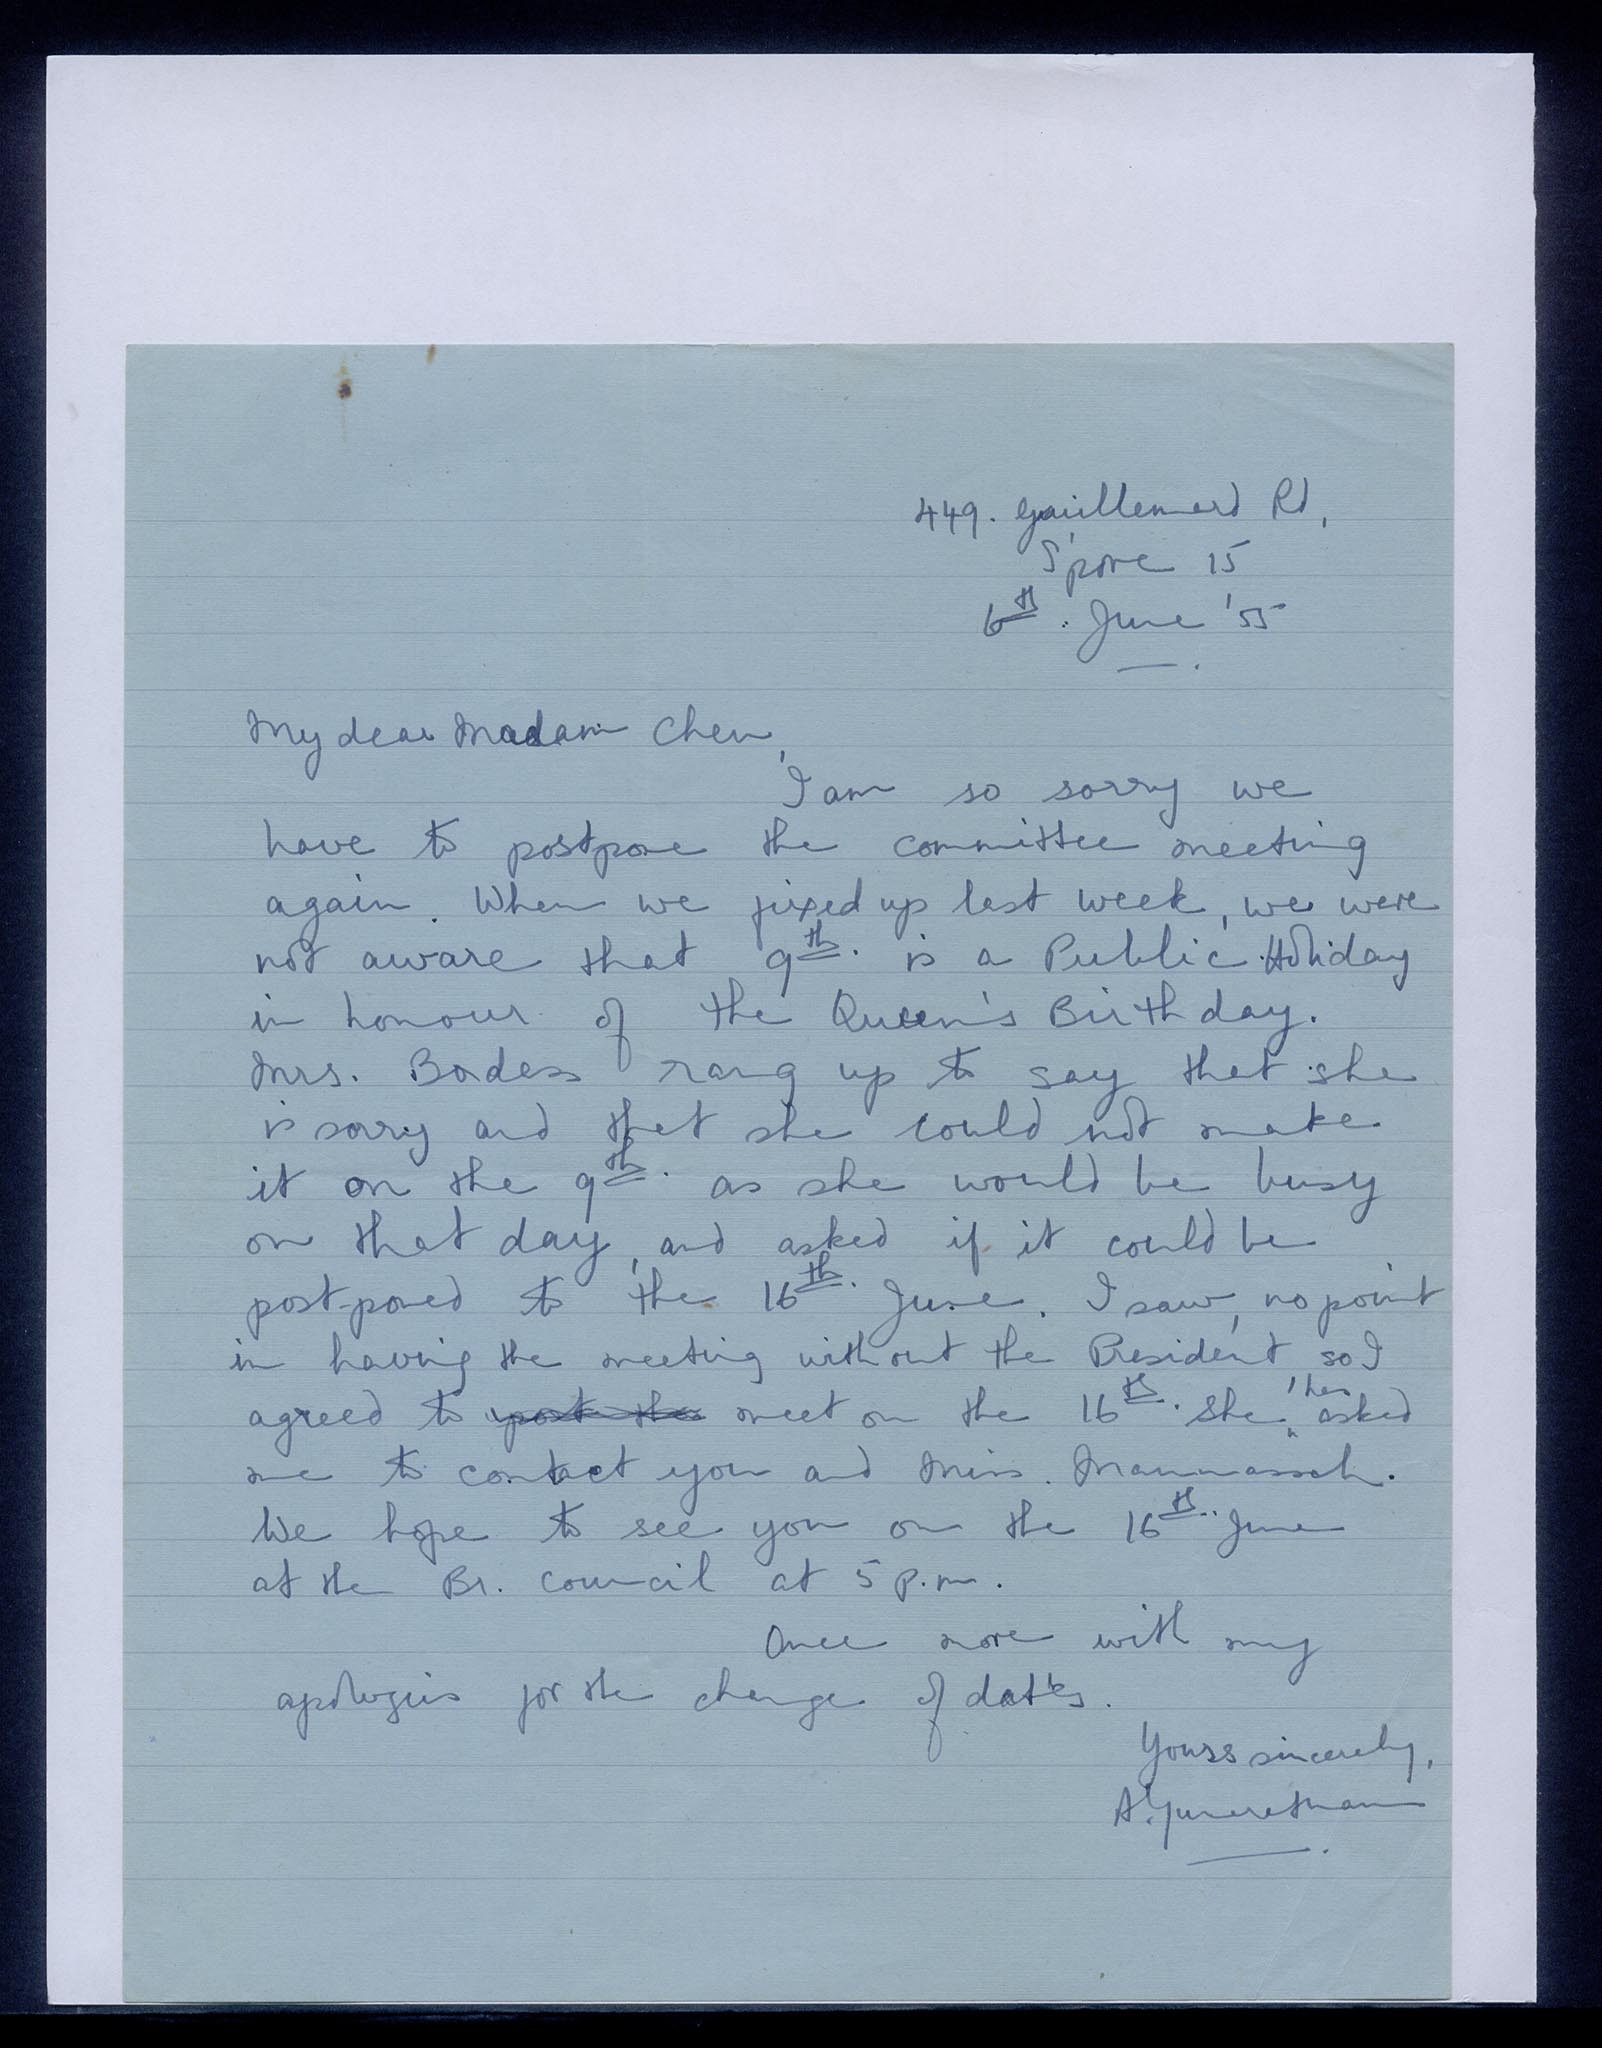 449. Guillemard Rd,
S'pore 15
6th. June '55
My dear Madam Chen,
I am so sorry we
have to postpone the committee meeting
again. When we fixed up last week, we were
not aware that 9th. is a Public Holiday
in honour of the Queen's Birthday.
Mrs. Bodess rang up to say that she
is sorry and that she could not make
it on the 9th. as she would be busy
on that day, and asked if it could be
post-poned to the 16th. June. I saw no point
in having the meeting without the President, so I
agreed to meet on the 16th. She, has asked
me to contact you and Miss. Mannasseh.
We hope to see you on the 16th. June
at the Br. Council at 5 p.m.
Once more with my
apologies for the change of dates.
Yours sincerely,